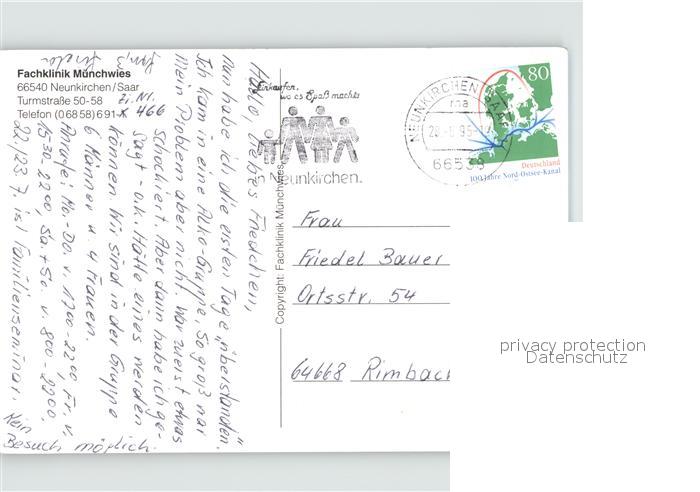 Fachklinik Münchwies
66540 Neunkirchen/Saar
Turmstraße 50-58
Telefon (06858) 691-
Zi. Nr.
x 466
Hallo, liebes Friedchen,
nun habe ich die ersten Tage „überstanden".
Ich kam in eine Alko-Gruppe. So groß war
mein Problem aber nicht. War zuerst etwas
schockiert. Aber dann habe ich ge-
sagt - o.k. Hätte eines werden
können. Wir sind in der Gruppe
6 Männer u. 4 Frauen.
Anrufe: Mo.-Do. v. 17.00-22.00, Fr. v.
15.30-22.00, Sa. + So. v. 8.00-22.00.
22./23.7. ist Familienseminar. Kein
Besuch möglich.
Einkaufen,
wo es Spaß macht
Neunkirchen.
NEUNKIRCHEN, SAAR
ma
95
66538
80
Deutschland
100 Jahre Nord-Ostsee-Kanal
Copyright: Fachklinik Münchwies
Frau
Friedel Bauer
Ortsstr. 54
64668 Rimbach
privacy protection
Datenschutz